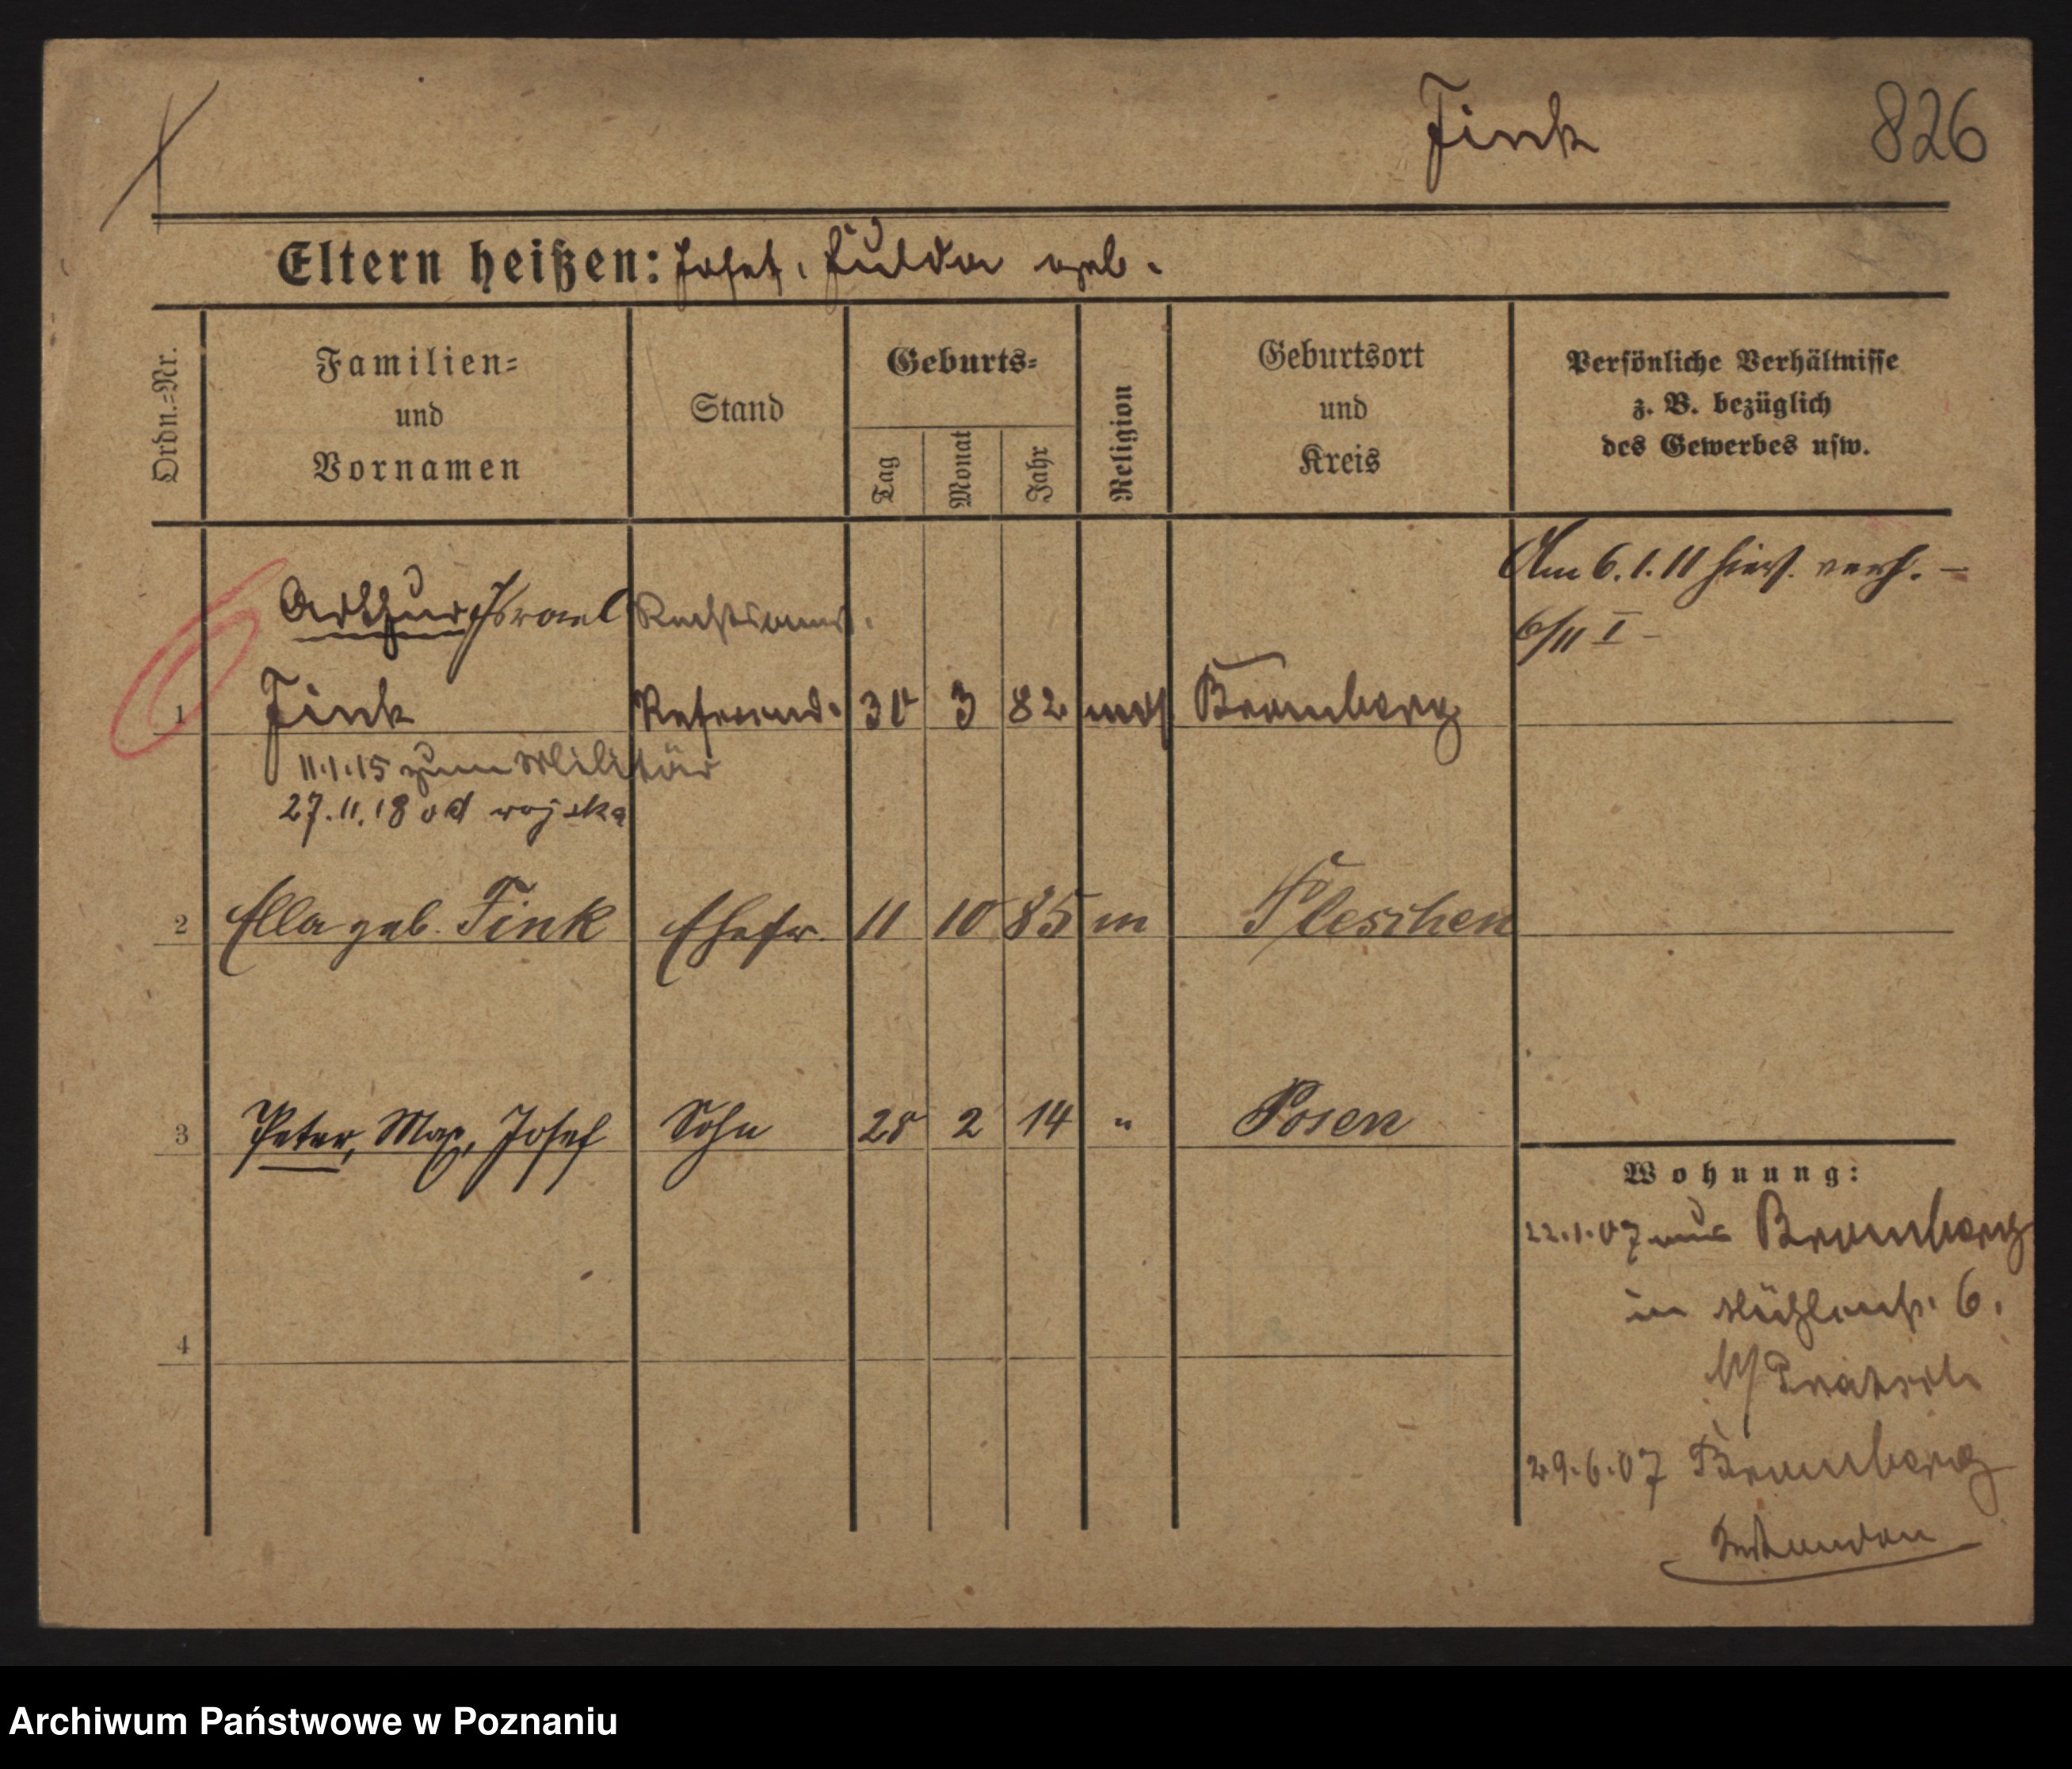 Fink 826
Eltern heißen: Josef, Hulda geb.
Ordn.=Nr.
Familien=
und
Vornamen
Stand
Geburts=
Tag
Monat
Jahr
Religion
Geburtsort
und
Kreis
Persönliche Verhältnisse
z. B. bezüglich
des Gewerbes usw.
Am 6.1.11 hier verh. -
6/11 I -
Arthur Israel Rechtsanw.
1 Fink Referend. 30 3 82 mos Bromberg
11.1.15 zum Militär
27.11.18 od wojska
2 Ella geb. Fink Ehefr. 11 10 85 m Pleschen
3 Peter, Max, Josef Sohn 28 2 14 " Posen
Wohnung:
22.1.07 aus Bromberg
in Mühlenstr. 6.
4
29.6.07 Bromberg
Archiwum Państwowe w Poznaniu